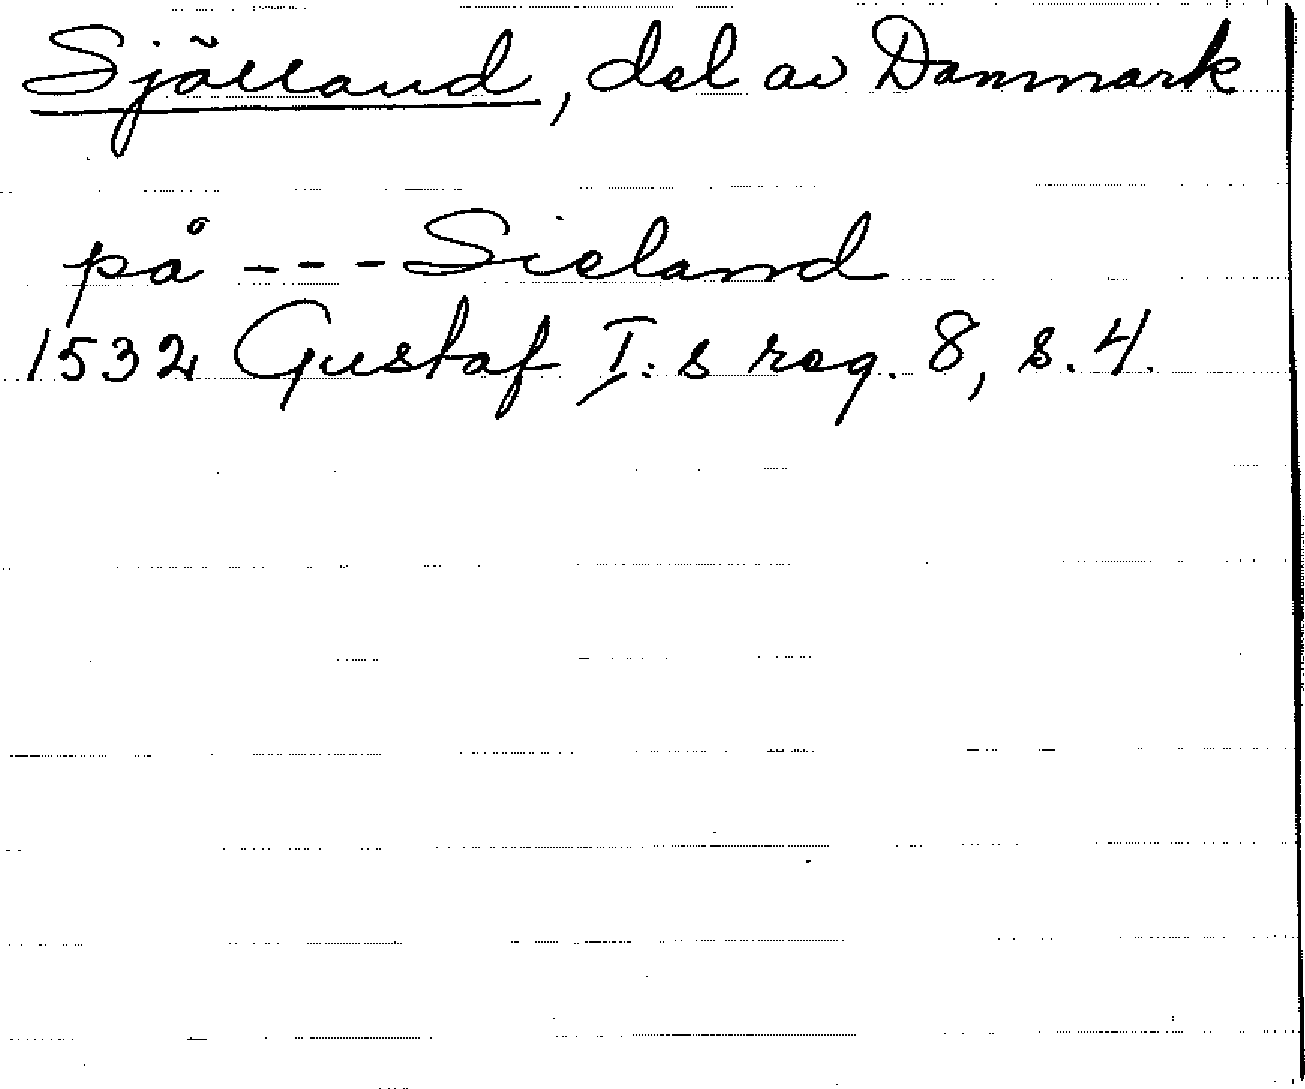 Själland, del av Danmark
på --- Sieland
1532 Gustaf I:s reg. 8, s. 4.